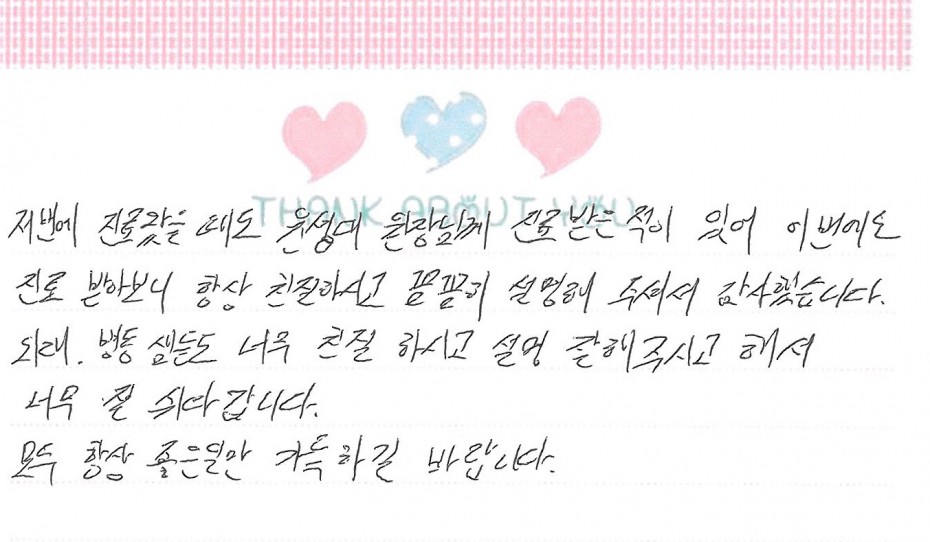 THANK ABOUT YOU
저번에 진료왔을 때도 윤성대 원장님께 진료받은적이 있어 이번에도
진료 받아보니 항상 친절하시고 꼼꼼히 설명해 주셔서 감사했습니다.
외래. 병동 샘들도 너무 친절 하시고 설명 잘해주시고 해서
너무 잘 쉬다갑니다.
모두 항상 좋은일만 가득하길 바랍니다.